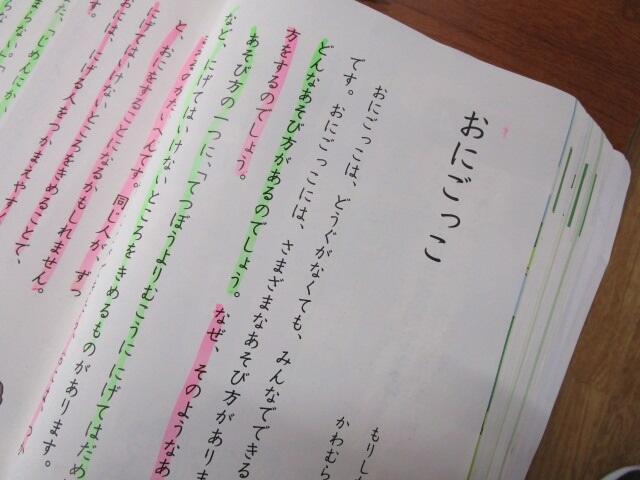 おにごっこ
もりし
かわむら
おにごっこは、どうぐがなくても、みんなでできる
です。おにごっこには、さまざまなあそび方がありま
どんなあそび方があるのでしょう。なぜ、そのようなあ
方をするのでしょう。
あそび方の一つに、「てつぼうよりむこうににげてはだめ
など、にげてはいけないところをきめるものがあります。
るのがたいへんです。同じ人が、ずっ
と、おにをすることになるかもしれません。
にげてはいけないところをきめることで、
おには、にげる人をつかまえやす
す。
た、「じめんにか